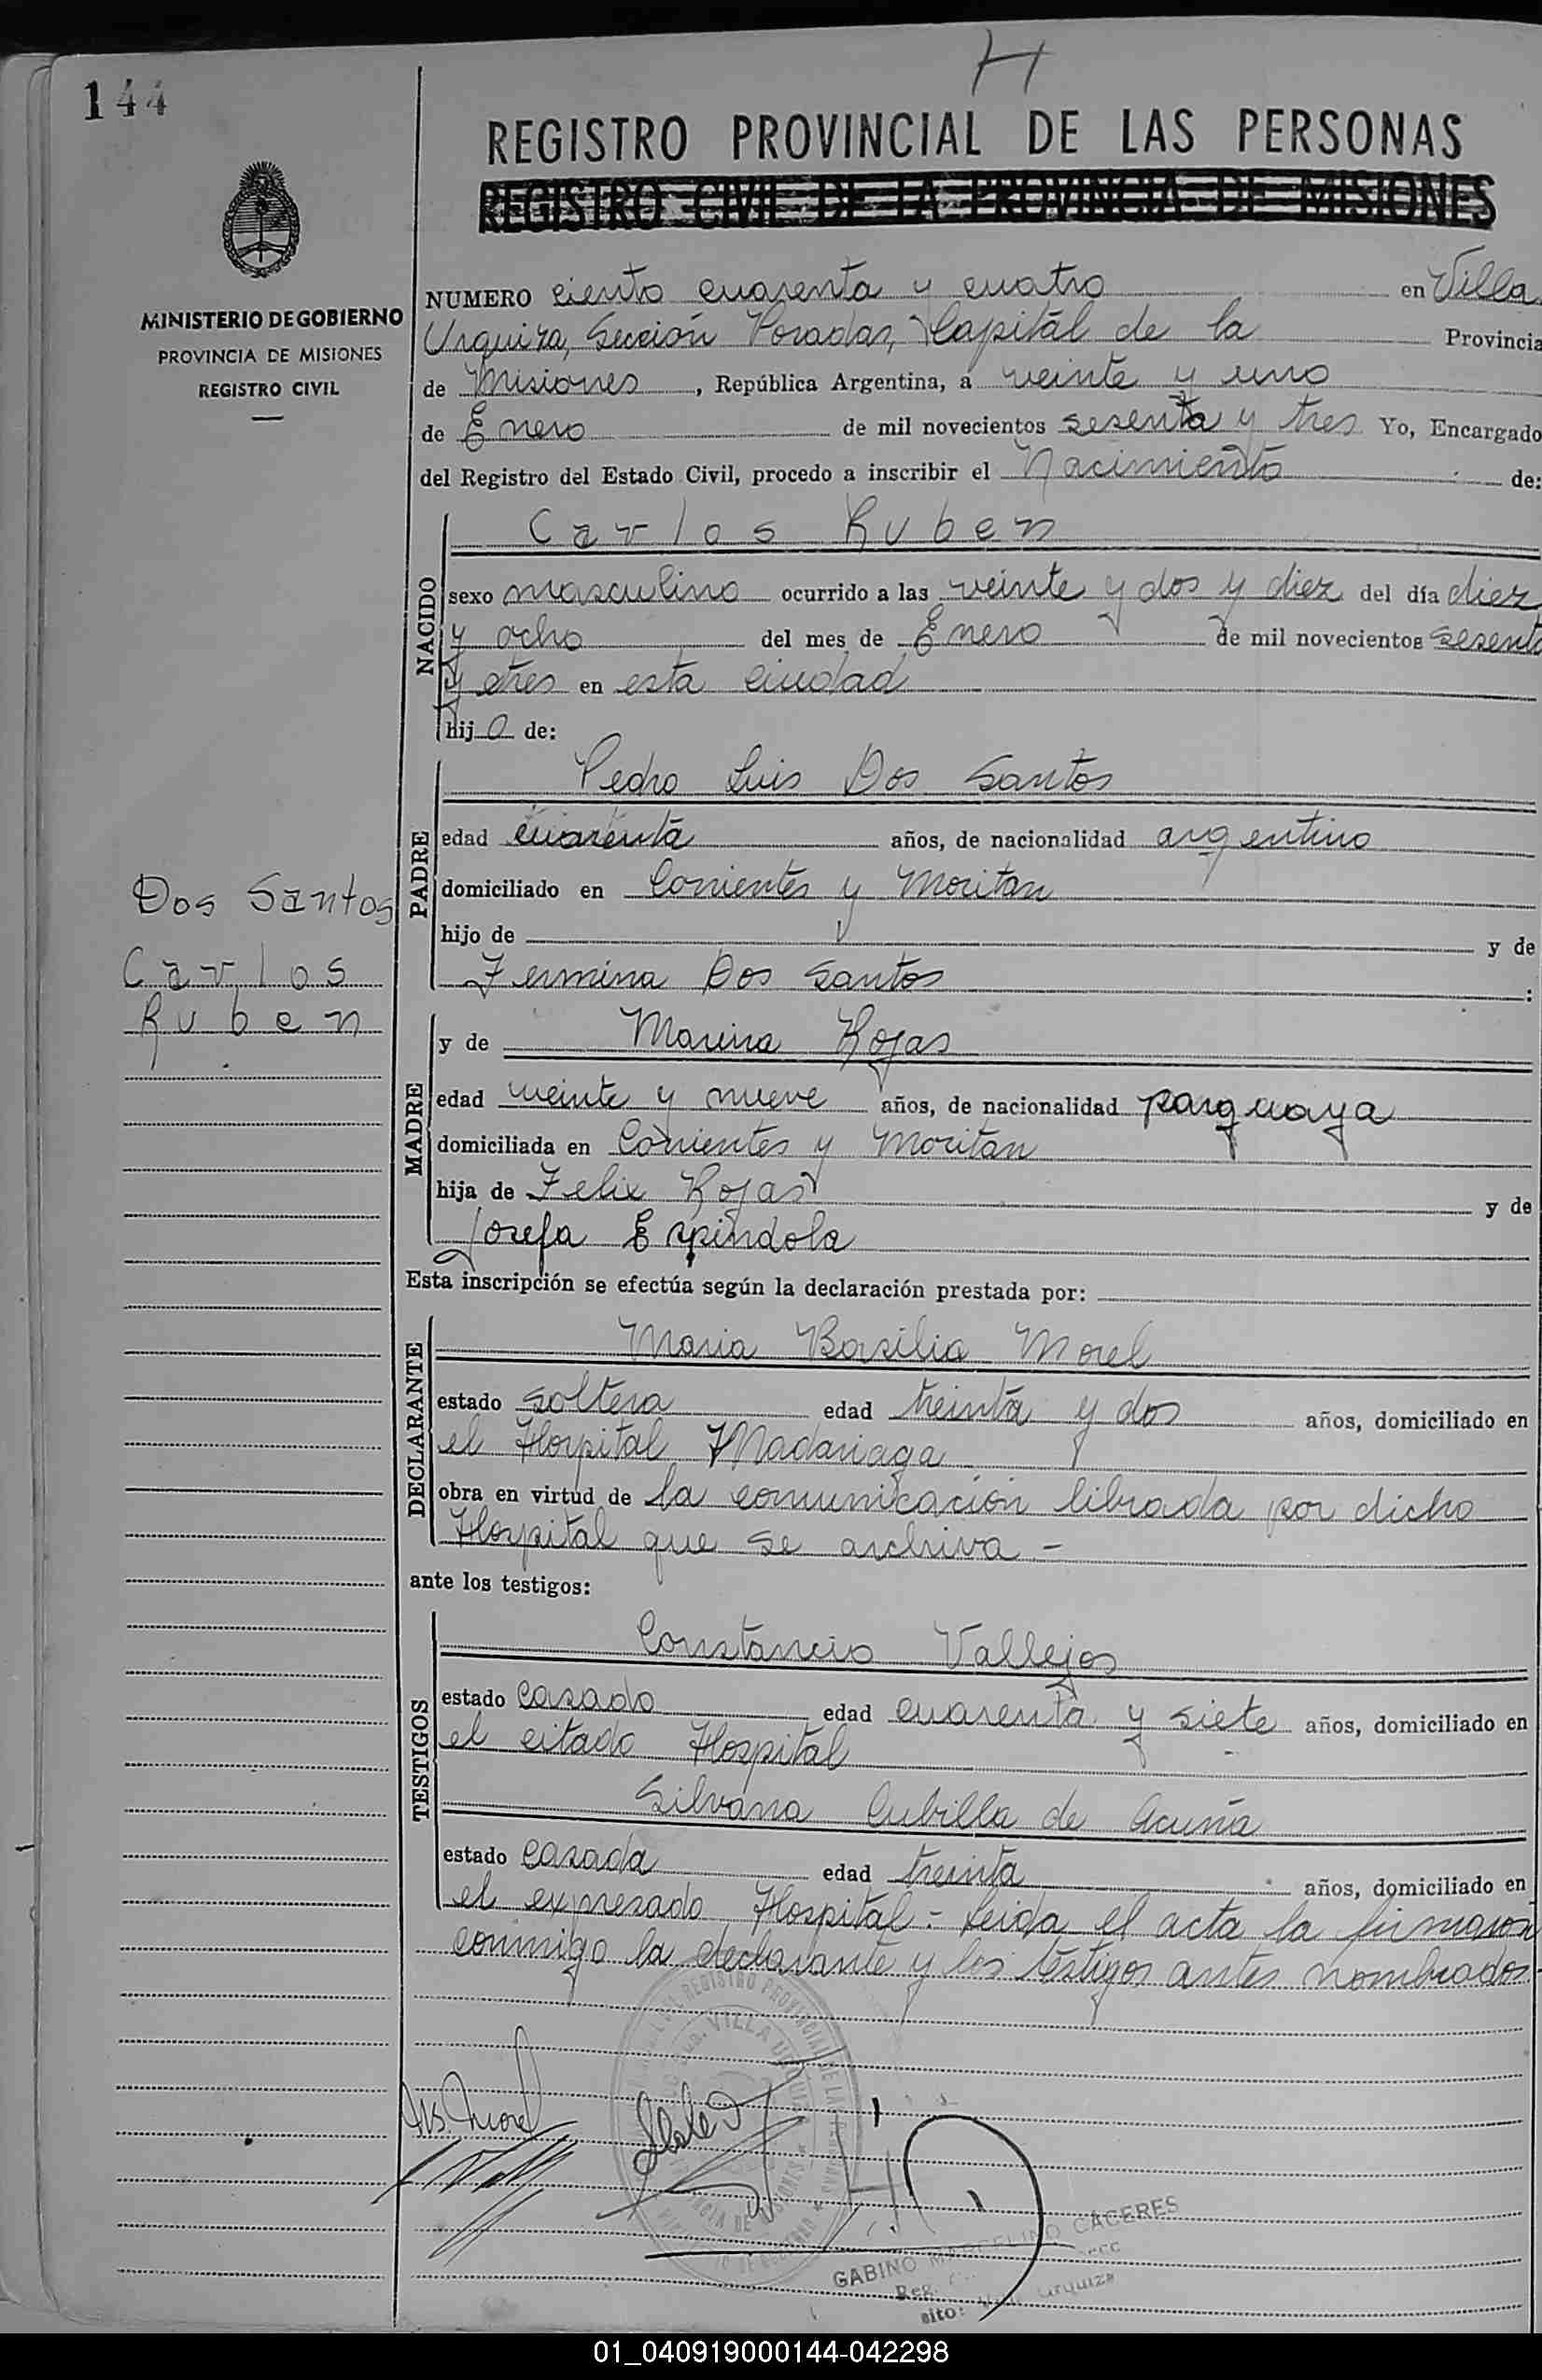 H
144
REGISTRO PROVINCIAL DE LAS PERSONAS
REGISTRO CIVIL DE LA PROVINCIA DE MISIONES
MINISTERIO DE GOBIERNO
PROVINCIA DE MISIONES
REGISTRO CIVIL
NUMERO ciento cuarenta y cuatro en Villa
Urquiza, Sección Posadas, Capital de la Provincia
de Misiones, República Argentina, a veinte y uno
de Enero de mil novecientos sesenta y tres Yo, Encargado
del Registro del Estado Civil, procedo a inscribir el Nacimiento de:
NACIDO
Carlos Ruben
sexo masculino ocurrido a las veinte y dos y diez del día diez
y ocho del mes de Enero de mil novecientos sesenta
y tres en esta ciudad
hijo de:
PADRE
Pedro Luis Dos Santos
edad cuarenta años, de nacionalidad argentino
domiciliado en Corrientes y Moritan
hijo de y de
Fermina Dos Santos :
Dos Santos
Carlos
Ruben
MADRE
y de Marina Rojas
edad veinte y nueve años, de nacionalidad paraguaya
domiciliada en Corrientes y Moritan
hija de Felix Rojas y de
Josefa Espindola
Esta inscripción se efectúa según la declaración prestada por:
DECLARANTE
Maria Basilia Morel
estado soltera edad treinta y dos años, domiciliado en
el Hospital Madariaga
obra en virtud de la comunicación librada por dicho
Hospital que se archiva.-
ante los testigos:
TESTIGOS
Constancio Vallejos
estado casado edad cuarenta y siete años, domiciliado en
el citado Hospital
Silvana Cubilla de Acuña
estado casada edad treinta años, domiciliado en
el expresado Hospital.- Leida el acta la firmaron
conmigo la declarante y los testigos antes nombrados.
Morel
GABINO MARCELINO CACERES
Urquiza
01_040919000144-042298